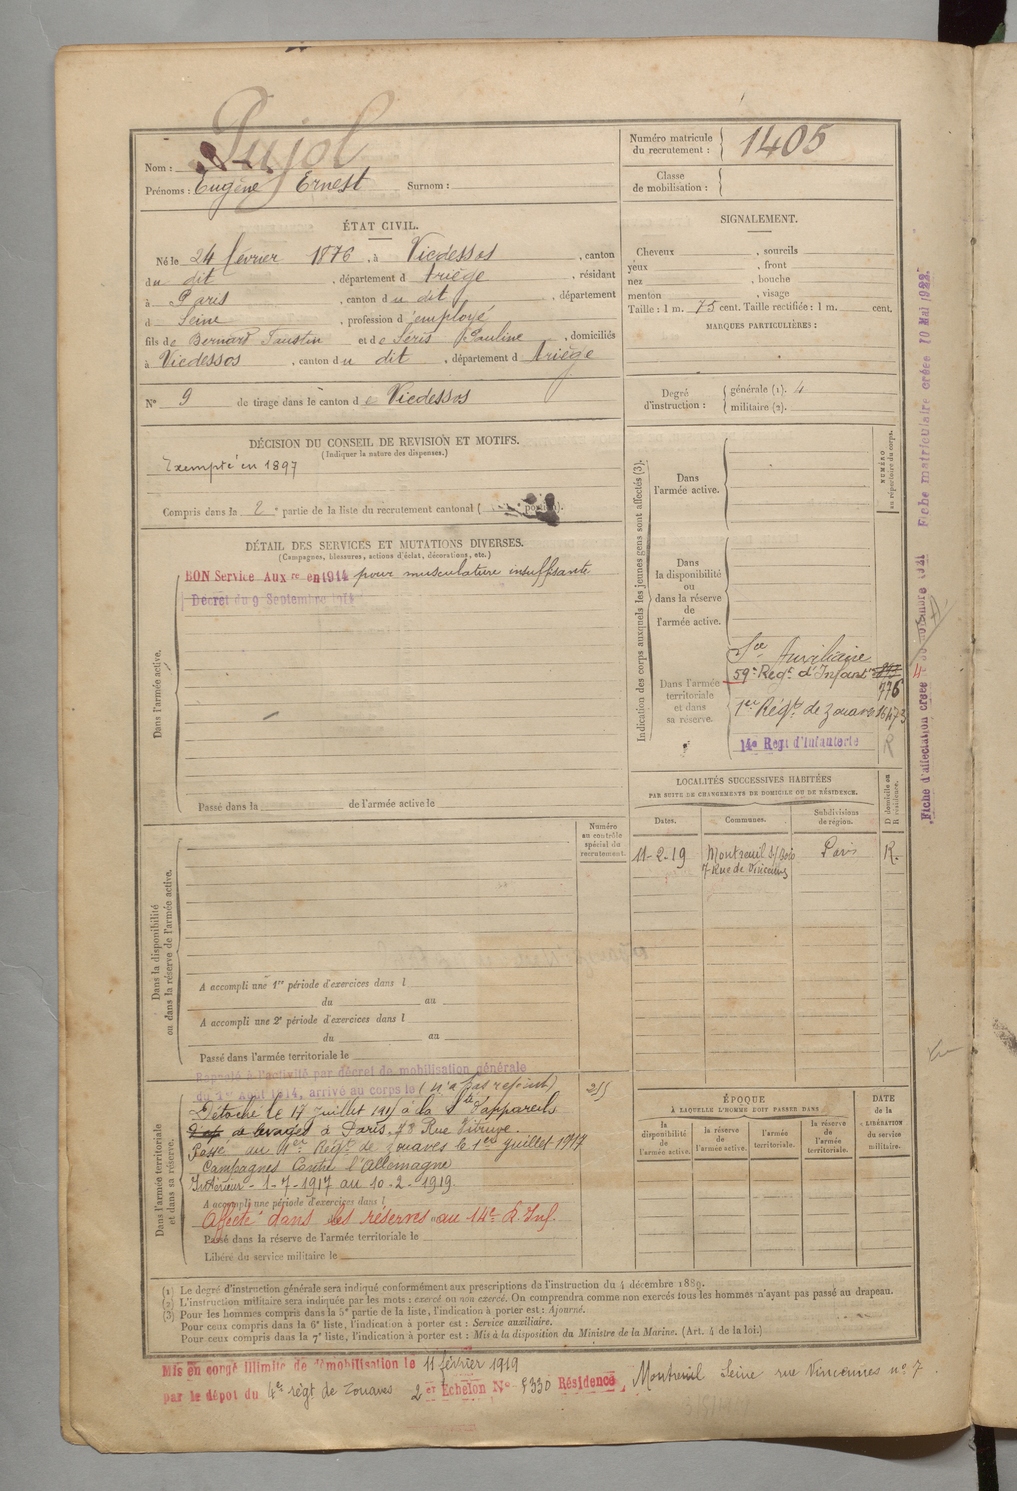 Pujol
Nom :
Prénoms : Eugène Ernest Surnom :
Numéro matricule du recrutement : 1405
Classe de mobilisation :
ÉTAT CIVIL.
Né le 24 février 1876, à Vicdessos, canton
du dit, département d Ariège, résidant
à Paris, canton du dit, département
d Seine, profession d'employé
fils de Bernard Faustin et de Séris Pauline, domiciliés
à Vicdessos, canton du dit, département d Ariège
N° 9 de tirage dans le canton de Vicdessos
SIGNALEMENT.
Cheveux , sourcils
yeux , front
nez , bouche
menton , visage
Taille : 1 m. 75 cent. Taille rectifiée : 1 m. cent.
MARQUES PARTICULIÈRES :
Degré d'instruction : générale (1). 4
militaire (2).
DÉCISION DU CONSEIL DE REVISION ET MOTIFS.
(Indiquer la nature des dispenses.)
Exempté en 1897
Compris dans la 2e partie de la liste du recrutement cantonal (
DÉTAIL DES SERVICES ET MUTATIONS DIVERSES.
(Campagnes, blessures, actions d'éclat, décorations, etc.)
BON Service Auxre en 1914 pour musculature insuffisante
Décret du 9 Septembre 1914
Dans l'armée active.
Passé dans la de l'armée active le
Indication des corps auxquels les jeunes gens sont affectés (3).
NUMÉRO au répertoire du corps.
Dans l'armée active.
Dans la disponibilité ou dans la réserve de l'armée active.
Dans l'armée territoriale et dans sa réserve.
Sce Auxiliaire
59e Régt d'Infantrie
776
1er Régt de Zouaves 16473
14e Régt d'Infanterie R
LOCALITÉS SUCCESSIVES HABITÉES
PAR SUITE DE CHANGEMENTS DE DOMICILE OU DE RÉSIDENCE.
D domicile ou R résidence.
Dates. Communes. Subdivisions de région.
11-2-19 Montreuil s/Bois Paris R.
7 Rue de Vincennes
Numéro au contrôle spécial du recrutement.
Dans la disponibilité ou dans la réserve de l'armée active.
A accompli une 1re période d'exercices dans l
du au
A accompli une 2e période d'exercices dans l
du au
Passé dans l'armée territoriale le
Dans l'armée territoriale et dans sa réserve.
Rappelé à l'activité par décret de mobilisation générale
du 1er Août 1914, arrivé au corps le (n'a pas rejoint)
Détaché le 17 juillet 1915 à la Sté d'appareils
de levages à Paris, 78 Rue Vitruve.
Passé au 1er Régt de Zouaves le 1er juillet 1917
Campagnes Contre l'Allemagne
Intérieur - 1-7-1917 au 10-2-1919
A accompli une période d'exercices dans l
Affecté dans les réserves au 14e R. Inf.
Passé dans la réserve de l'armée territoriale le
Libéré du service militaire le
ÉPOQUE
À LAQUELLE L'HOMME DOIT PASSER DANS
DATE de la LIBÉRATION du service militaire.
la disponibilité de l'armée active.
la réserve de l'armée active.
l'armée territoriale.
la réserve de l'armée territoriale.
(1) Le degré d'instruction générale sera indiqué conformément aux prescriptions de l'instruction du 4 décembre 1889.
(2) L'instruction militaire sera indiquée par les mots : exercé ou non exercé. On comprendra comme non exercés tous les hommes n'ayant pas passé au drapeau.
(3) Pour les hommes compris dans la 5e partie de la liste, l'indication à porter est : Ajourné.
Pour ceux compris dans la 6e liste, l'indication à porter est : Service auxiliaire.
Pour ceux compris dans la 7e liste, l'indication à porter est : Mis à la disposition du Ministre de la Marine. (Art. 4 de la loi.)
Mis en congé illimité de démobilisation le 11 février 1919
par le dépôt du 4e régt de Zouaves 2er Échelon N° 5330 Résidence, Montreuil Seine rue Vincennes n° 7
Fiche matriculaire créée 10 Mai 1922.
Fiche d'affectation créée